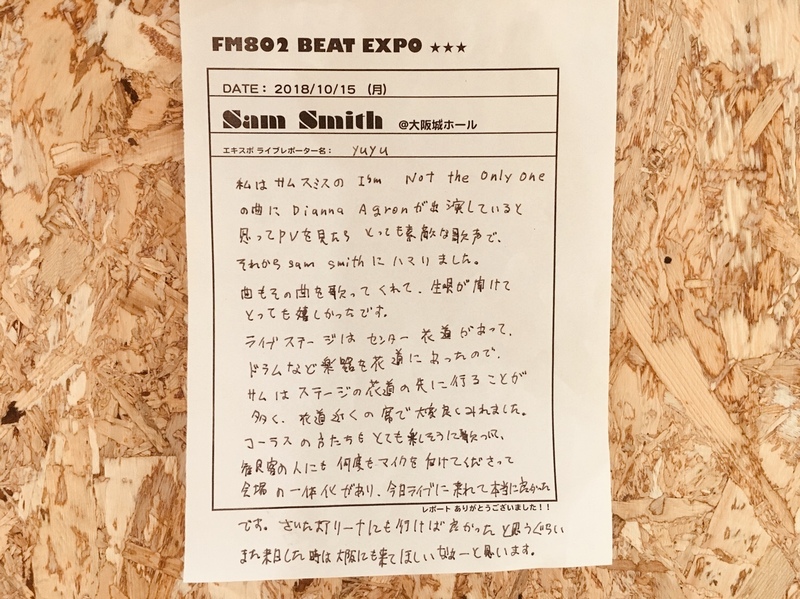 FM802 BEAT EXPO ★★★
DATE： 2018/10/15 （月）
Sam Smith @大阪城ホール
エキスポ ライブレポーター名： yuyu
私は サム スミスの I'm Not the Only One
の曲に Dianna Agronが出演していると
思ってPVを見たら とっても素敵な歌声で、
それから sam smith に ハマりました。
曲もその曲を歌って くれて、生唄が聴けて
とっても嬉しかったです。
ライブステージは センター 花道が あって、
ドラムなど楽器を花道にあったので、
サムは ステージの花道の先に行ることが
多く、花道近くの席で大変良くみれました。
コーラスの方たちも とても楽しそうに歌って、
観客の人にも 何度もマイクを 向けてくださって
会場 の一体化があり、今日ライブに 来れて本当に良かった
レポート ありがとうございました！！
です。さいたまアリーナにも行けば良かった と思うぐらい
また来日した時は大阪にも来てほしいなぁーと思います。